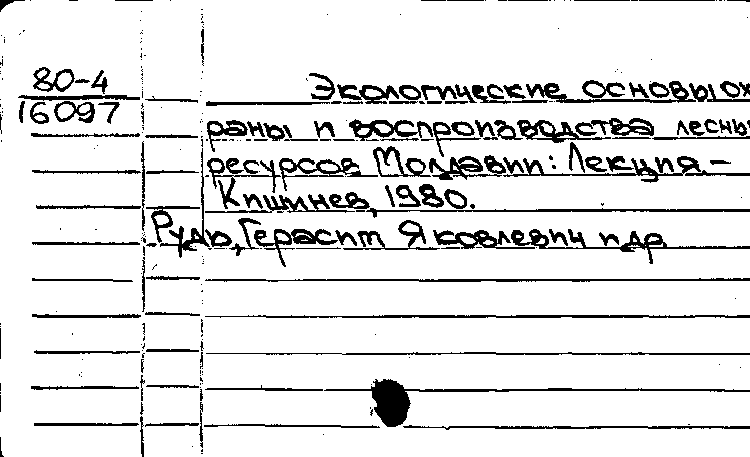 80-4
16097
Экологические основы ох
раны и воспроизводства лесны
ресурсов Молдавии: Лекция.-
Кишинев, 1980.
Рудю, Герасим Яковлевич и др.